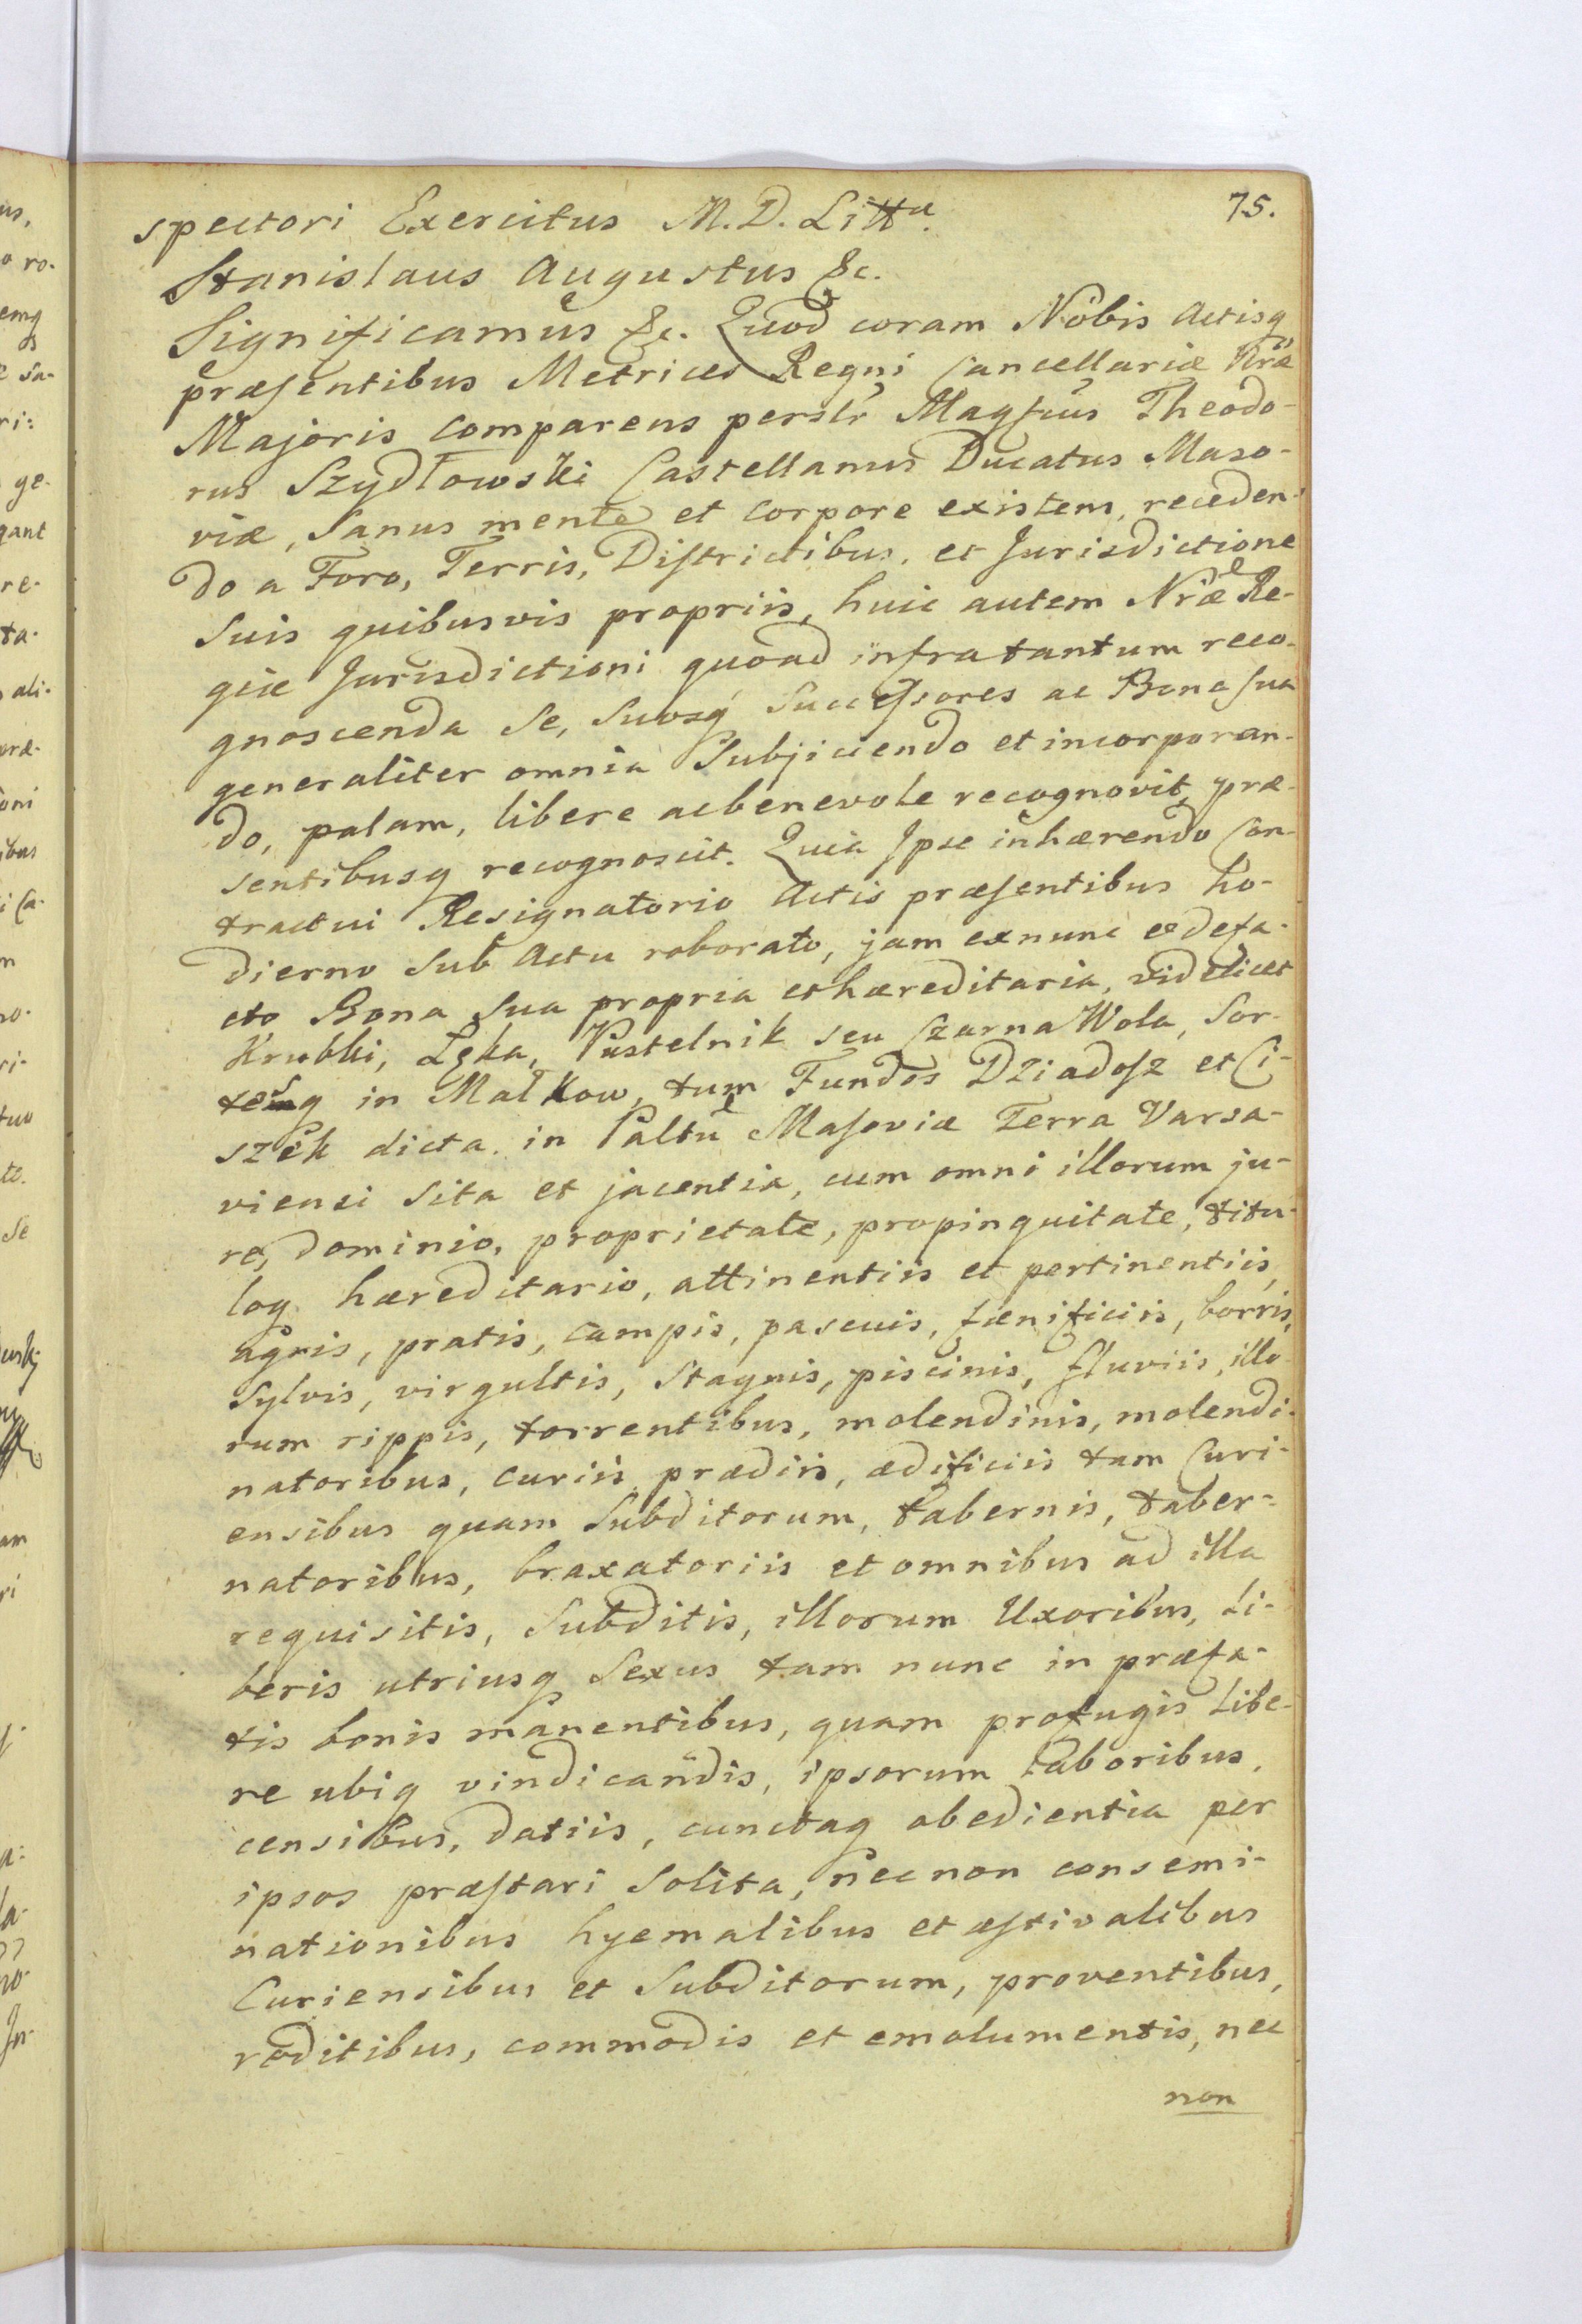 75.
spectori Exercitus M. D. Litt.ͣ
Stanislaus Augustus &c.
Significamus &c. Quod coram Nobis Actisq
præsentibus Metrices Regni Cancellariæ Nræ
Majoris comparens perslr Magfcus Theodo-
rus Szydłowski Castellanus Ducatus Maso-
viæ, Sanus mente et corpore existens, receden-
do a Foro, Terris, Districtibus, et Jurisdictione
Suis quibusvis propriis, huic autem Nræ Re-
giæ Jurisdictioni quoad infra tantum reco-
gnoscenda Se, Suosq Successores ac Bona sua
generaliter omnia Subjiciendo et incorporan-
do, palam, libere ac benevole recognovit, præ-
sentibusq recognoscit. Quia Ipse inhærendo Con-
tractui Resignatorio Actis præsentibus ho-
dierno Sub Actu roborato, jam exnunc et defa-
cto Bona Sua propria et hæreditaria, videlicet
Krubki, Łęka, Pustelnik seu Czarna Wola, Sor-
tesq in Malkow, tum Fundos Dziadosz et Ci-
szek dicta. in Paltu Masoviæ Terra Varsa-
viensi Sita et jacentia, cum omni illorum ju-
re, dominio, proprietate, propinquitate, titu-
loq hæreditario, attinentiis et pertinentiis,
agris, pratis, campis, pascuis, fænificiis, borris,
Sylvis, virgultis, Stagnis, piscinis, fluviis, illo-
rum rippis, torrentibus, molendinis, molendi-
natoribus, curiis, prædiis, ædificiis tam Curi-
ensibus quam Subditorum, tabernis, taber-
natoribus, braxatoriis et omnibus ad illa
requisitis, Subditis, illorum Uxoribus, Li-
beris utriusq Sexus tam nunc in præfa-
tis bonis manentibus, quam profugis libe-
re ubiq vindicandis, ipsorum laboribus,
censibus, datiis, cunctaq obedientia per
ipsos præstari Solita, nec non consemi-
nationibus hyemalibus et æstivalibus
Curiensibus et Subditorum, proventibus,
reditibus, commodis et emolumentis, nec
non